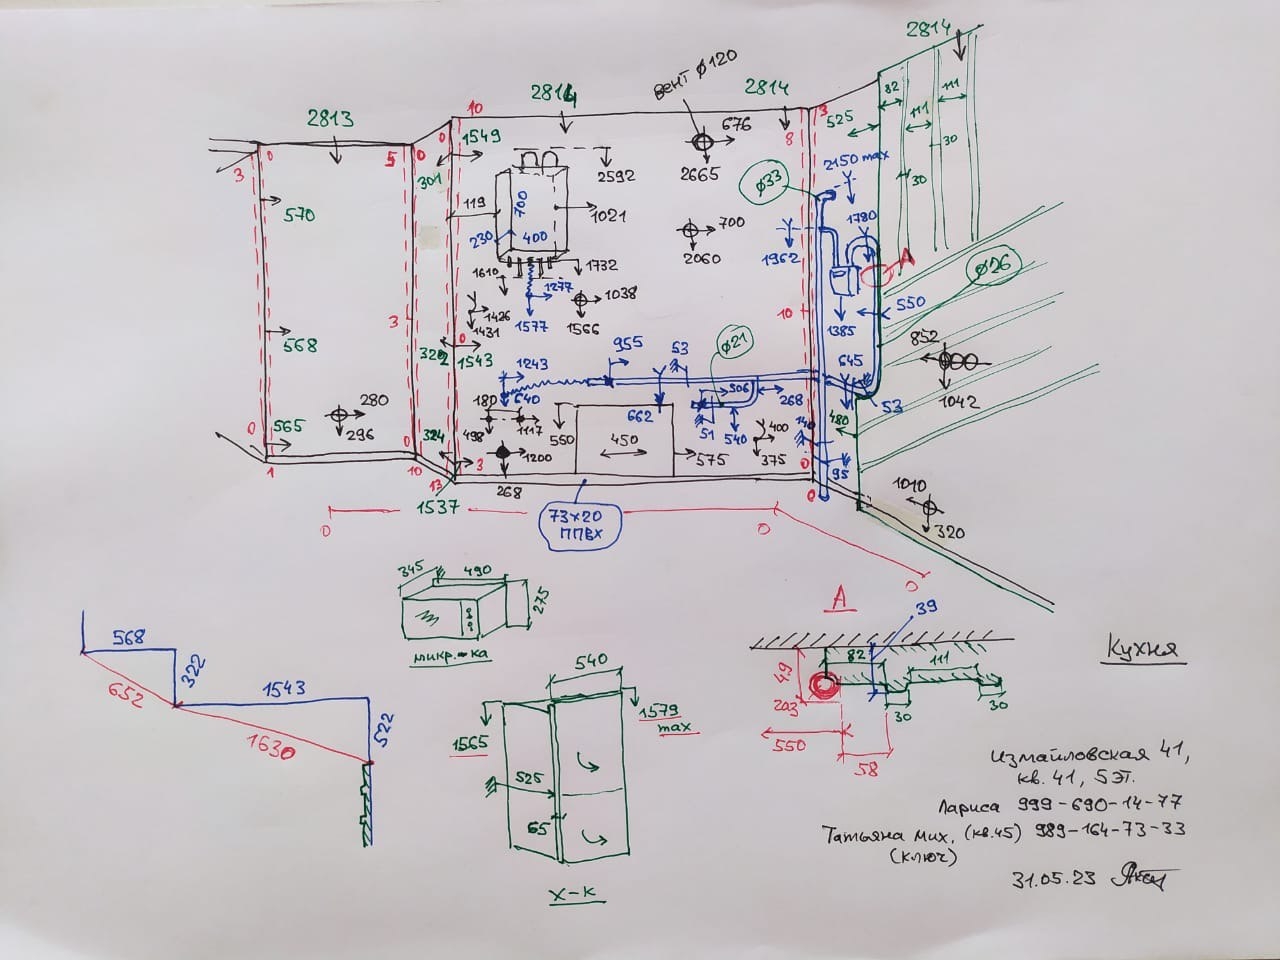 2814
2813
2814
вент ф120
2814
10
3
0
5
0
0
0
1549
3
301
570
119
700
230
400
2592
1021
1732
1610
1277
1577
1426
1431
1038
1566
676
2665
700
2060
8
3
525
82
111
111
30
30
ф33
2150 max
1780
1962
А
ф26
550
1385
10
568
3
0
1543
1243
955
53
ф21
645
852
1042
53
280
296
565
0
1
0
10
324
13
3
180
640
498
1117
1200
268
550
450
662
575
506
268
51
540
400
375
480
0
95
1010
320
1537
73х20
ППВХ
0
0
0
0
345
490
275
микр-ка
568
322
652
1543
1630
522
540
1565
1579
max
525
65
х-к
А
39
49
82
111
30
30
550
58
Кухня
Измайловская 41,
кв. 41, 5эт.
Лариса 999-690-14-77
Татьяна Мих. (кв.45) 989-164-73-33
(ключ)
31.05.23